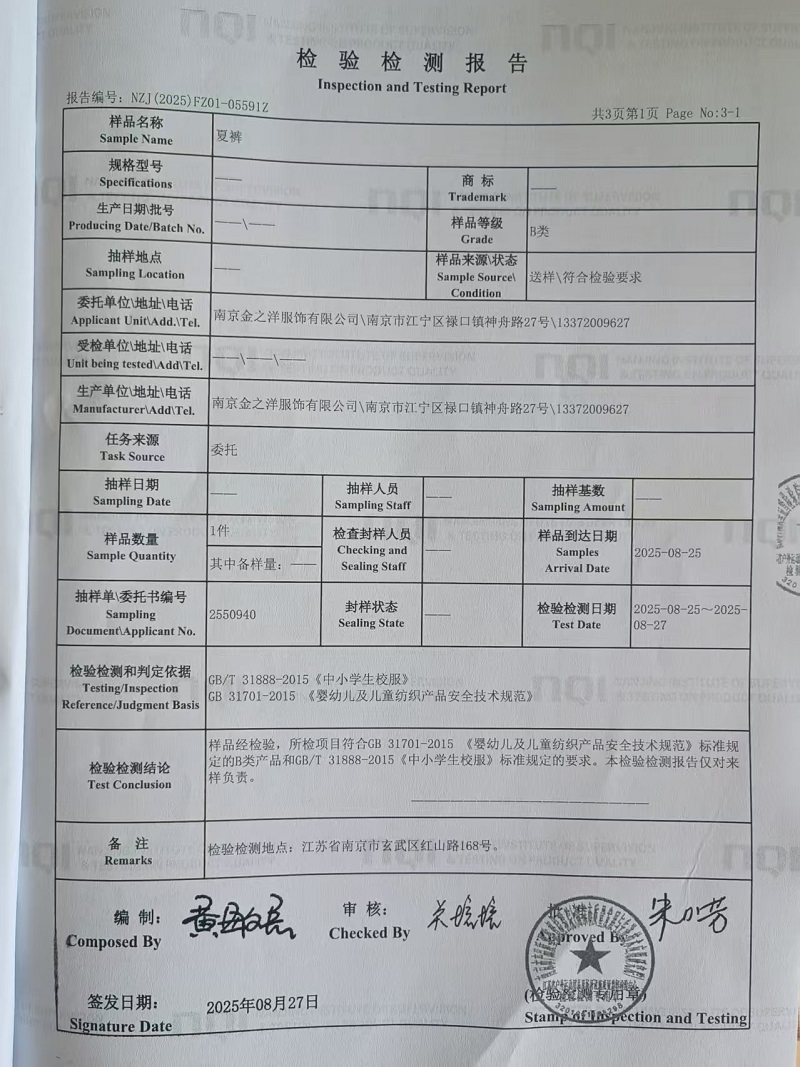 检验检测报告
Inspection and Testing Report
报告编号：NZJ(2025)FZ01-05591Z
共3页第1页 Page No:3-1
样品名称
Sample Name
夏裤
规格型号
Specifications
——
商 标
Trademark
——
生产日期\批号
Producing Date/Batch No.
——\——
样品等级
Grade
B类
抽样地点
Sampling Location
——
样品来源\状态
Sample Source\
Condition
送样\符合检验要求
委托单位\地址\电话
Applicant Unit\Add.\Tel.
南京金之洋服饰有限公司\南京市江宁区禄口镇神舟路27号\13372009627
受检单位\地址\电话
Unit being tested\Add\Tel.
——\——\——
生产单位\地址\电话
Manufacturer\Add\Tel.
南京金之洋服饰有限公司\南京市江宁区禄口镇神舟路27号\13372009627
任务来源
Task Source
委托
抽样日期
Sampling Date
——
抽样人员
Sampling Staff
——
抽样基数
Sampling Amount
——
样品数量
Sample Quantity
1件
其中备样量：——
检查封样人员
Checking and
Sealing Staff
——
样品到达日期
Samples
Arrival Date
2025-08-25
抽样单\委托书编号
Sampling
Document\Applicant No.
2550940
封样状态
Sealing State
——
检验检测日期
Test Date
2025-08-25～2025-
08-27
检验检测和判定依据
Testing/Inspection
Reference/Judgment Basis
GB/T 31888-2015《中小学生校服》
GB 31701-2015 《婴幼儿及儿童纺织产品安全技术规范》
检验检测结论
Test Conclusion
样品经检验，所检项目符合GB 31701-2015 《婴幼儿及儿童纺织产品安全技术规范》标准规
定的B类产品和GB/T 31888-2015《中小学生校服》标准规定的要求。本检验检测报告仅对来
样负责。
备 注
Remarks
检验检测地点：江苏省南京市玄武区红山路168号。
编 制：
Composed By
审 核：
Checked By
批 准：
Approved By
签发日期：
Signature Date
2025年08月27日
(检验检测专用章)
Stamp of Inspection and Testing